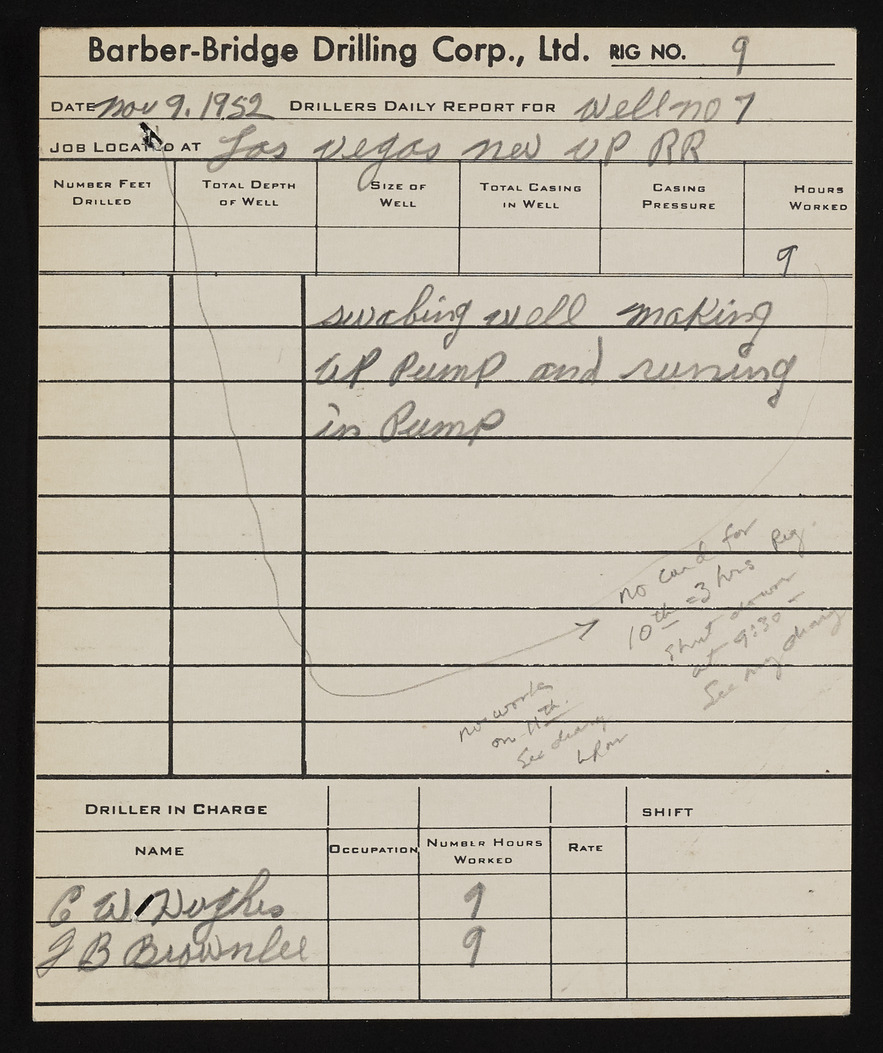 Barber-Bridge Drilling Corp., Ltd. RIG NO. 9
DATE Nov 9. 1952 DRILLERS DAILY REPORT FOR Well no 7
JOB LOCATED AT Las Vegas Nev UP RR
NUMBER FEET DRILLED TOTAL DEPTH OF WELL SIZE OF WELL TOTAL CASING IN WELL CASING PRESSURE HOURS WORKED
9
swabing well making
UP Pump and runing
in Pump
no card for
10th = 3 hrs Rig
shut down
at 9:30 -
See my diary
no work
on 11th.
See diary
DRILLER IN CHARGE SHIFT
NAME OCCUPATION NUMBER HOURS WORKED RATE
C W Hughes 9
J B Brownlee 9